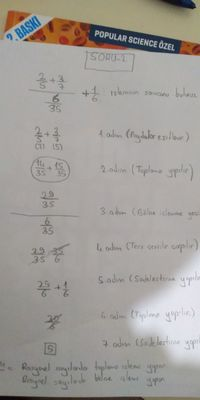 2. BASKI
POPULAR SCIENCE ÖZEL
SORU-2
2/5 + 3/7
6/35 + 1/6 işleminin sonucunu bulunuz
2/5 + 3/7 1. adım (Paydalar eşitlenir)
(7) (5)
14/35 + 15/35 2. adım (Toplama yapılır)
29/35
6/35 3. adım (Bölme işlemine
29/35 · 35/6 4. adım (Ters çevirilir çarpılır)
29/6 + 1/6 5. adım (Sadeleştirme yapılır
30/6 6. adım (Toplama yapılır)
5 7. adım (Sadeleştirme yapılır
Rasyonel sayılarda toplama işlemi yapar
Rasyonel sayılarda bölme işlemi yapar